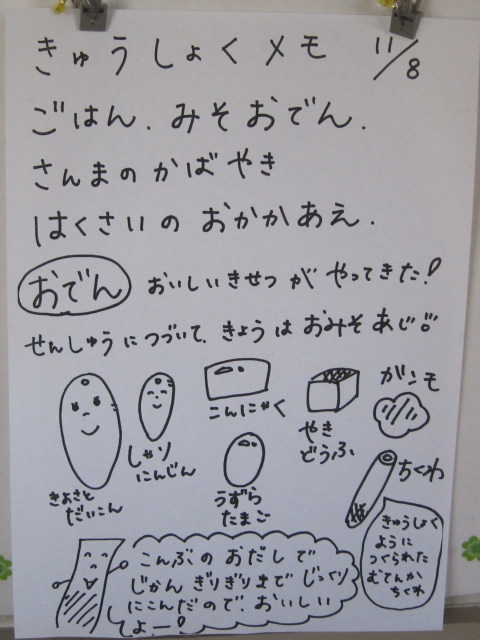 きゅうしょくメモ 11/8
ごはん. みそおでん.
さんまのかばやき
はくさいの おかかあえ.
おでん おいしいきせつが やってきた!
せんしゅうにつづいて、きょうは おみそあじ!!
こんにゃく
やき
どうふ
ガンモ
しゃり
にんじん
きよさと
だいこん
うずら
たまご
ちくわ
きゅうしょく
ように
つくられた
むてんか
ちくわ
こんぶの おだしで
じかん ぎりぎりまで じっくり
にこんだので、おいしい
よー!